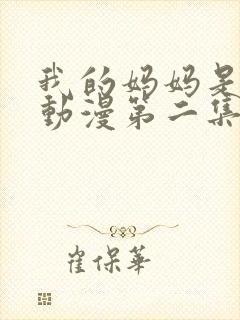 我的妈妈是
動漫第二集
崔保華